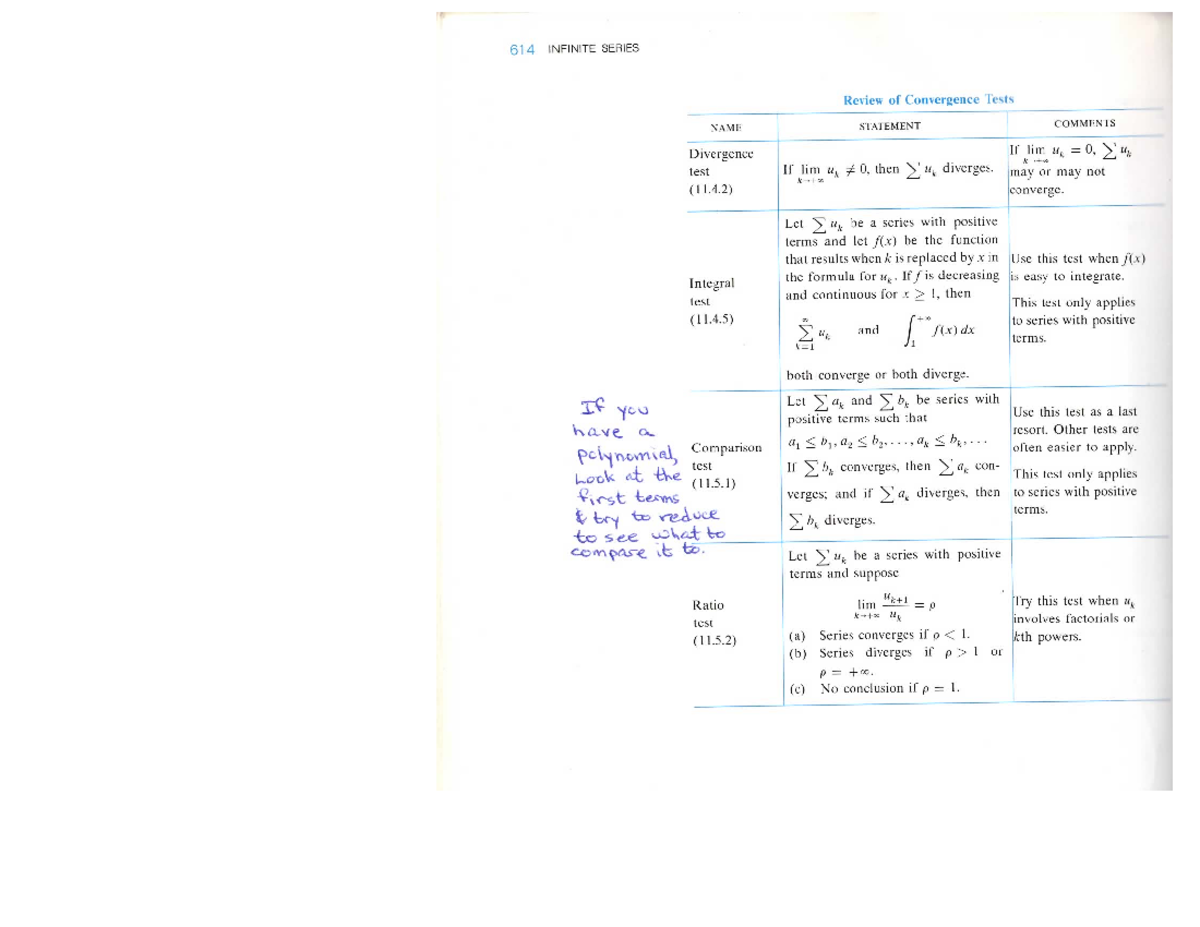 614 INFINITE SERIES
Review of Convergence Tests
NAME STATEMENT COMMENTS
Divergence
test
(11.4.2)
If lim u_k ≠ 0, then ∑ u_k diverges.
k→+∞
If lim u_k = 0, ∑ u_k
k→+∞
may or may not
converge.
Integral
test
(11.4.5)
Let ∑ u_k be a series with positive
terms and let f(x) be the function
that results when k is replaced by x in
the formula for u_k. If f is decreasing
and continuous for x ≥ 1, then
∞∑k=1 u_k and ∫₁^+∞ f(x) dx
both converge or both diverge.
Use this test when f(x)
is easy to integrate.
This test only applies
to series with positive
terms.
If you
have a
polynomial,
Look at the
first terms
& try to reduce
to see what to
compare it to.
Comparison
test
(11.5.1)
Let ∑ a_k and ∑ b_k be series with
positive terms such that
a₁ ≤ b₁, a₂ ≤ b₂, . . . , a_k ≤ b_k, . . .
If ∑ b_k converges, then ∑ a_k con-
verges; and if ∑ a_k diverges, then
∑ b_k diverges.
Use this test as a last
resort. Other tests are
often easier to apply.
This test only applies
to series with positive
terms.
Ratio
test
(11.5.2)
Let ∑ u_k be a series with positive
terms and suppose
lim u_k+1 / u_k = ρ
k→+∞
(a) Series converges if ρ < 1.
(b) Series diverges if ρ > 1 or
ρ = +∞.
(c) No conclusion if ρ = 1.
Try this test when u_k
involves factorials or
kth powers.